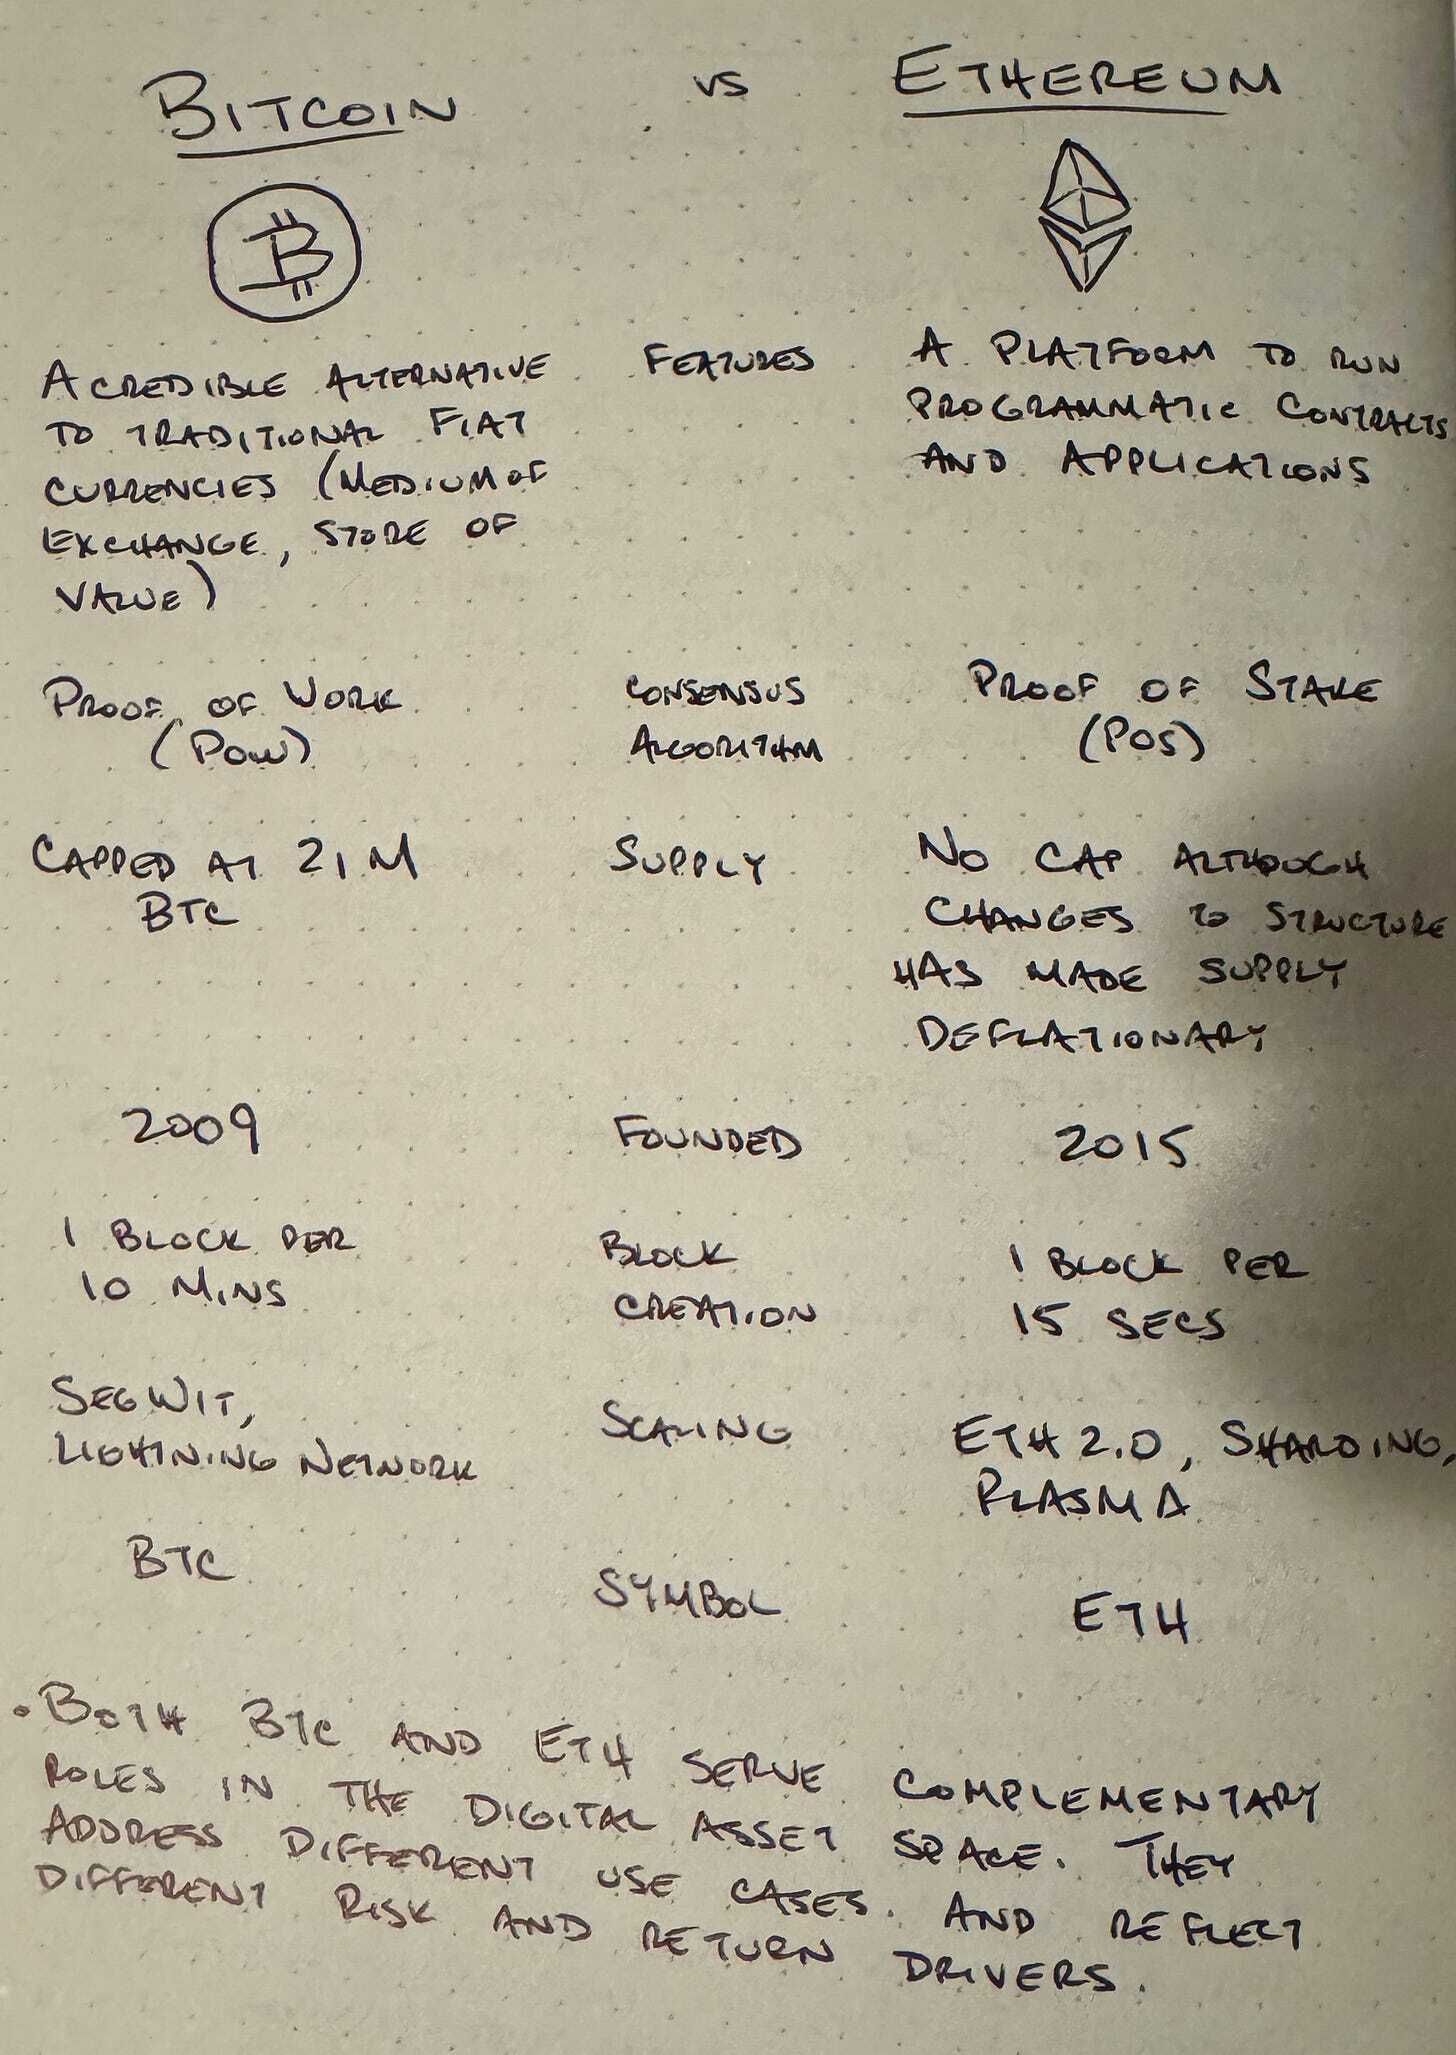 BITCOIN vs ETHEREUM
B
A CREDIBLE ALTERNATIVE
TO TRADITIONAL FIAT
CURRENCIES (MEDIUM OF
EXCHANGE, STORE OF
VALUE)
FEATURES
A PLATFORM TO RUN
PROGRAMMATIC CONTRACTS
AND APPLICATIONS
PROOF OF WORK
(POW)
CONSENSUS
ALGORITHM
PROOF OF STAKE
(POS)
CAPPED AT 21 M
BTC
SUPPLY
NO CAP ALTHOUGH
CHANGES TO STRUCTURE
HAS MADE SUPPLY
DEFLATIONARY
2009
FOUNDED
2015
1 BLOCK PER
10 MINS
BLOCK
CREATION
1 BLOCK PER
15 SECS
SEGWIT,
LIGHTNING NETWORK
SCALING
ETH 2.0, SHARDING,
PLASMA
BTC
SYMBOL
ETH
• BOTH BTC AND ETH SERVE COMPLEMENTARY
ROLES IN THE DIGITAL ASSET SPACE. THEY
ADDRESS DIFFERENT USE CASES. AND REFLECT
DIFFERENT RISK AND RETURN DRIVERS.